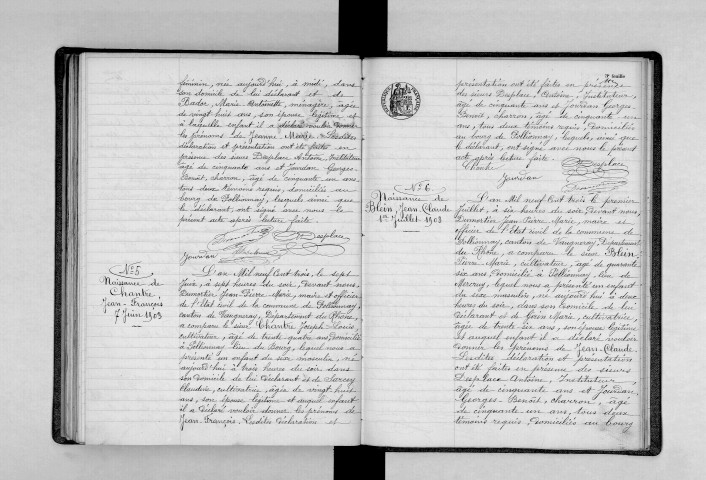 féminin, née aujourd'hui, à midi, dans
son domicile de lui déclarant et de
Bador, Marie Antoinette, ménagère, âgée
de vingt huit ans, son épouse légitime et
à laquelle enfant il a déclaré vouloir donner
les prénoms de Jeanne Marie. Lesdites
déclaration et présentation ont été faites en
présence des sieurs Desplace Antoine, Instituteur
âgé de cinquante ans et Jourdan Georges
Benoît, charron, âgé de cinquante un ans,
tous deux témoins requis, domiciliés au
bourg de Pollionnay, lesquels ainsi que
le déclarant, ont signé avec nous le
présent acte après lecture faite.
Desplace
Jourdan
N° 5
Naissance de
Chantre,
Jean-François
7 Juin 1903
L'an Mil neuf cent trois, le sept
Juin, à sept heures du soir, Devant nous,
Dumortier Jean-Pierre Marie, maire et officier
de l'Etat civil de la commune de Pollionnay,
canton de Vaugneray, Département du Rhône,
a comparu le sieur Chantre Joseph Louis,
cultivateur, âgé de trente quatre ans, domicilié
à Pollionnay lieu du Bourg, lequel nous a
présenté un enfant du sexe masculin, né
aujourd'hui à trois heures du soir dans
son domicile de lui déclarant et de Sarcey
Claudine, cultivatrice, âgée de vingt huit
ans, son épouse légitime et auquel enfant
il a déclaré vouloir donner les prénoms de
Jean-François. Lesdites déclaration et
feuillet
présentation ont été faites en présence
des sieurs Desplace, Antoine, Instituteur,
âgé de cinquante ans et Jourdan Georges
Benoît, charron, âgé de cinquante un
ans, tous deux témoins requis, domiciliés
au bourg de Pollionnay, lesquels, ainsi que
le déclarant, ont signé avec nous le présent
acte après lecture faite.
Desplace
Chantre
Jourdan
N° 6
Naissance de
Blein, Jean Claude
1er Juillet 1903
L'an Mil neuf cent trois le premier
Juillet, à six heures du soir, Devant nous,
Dumortier Jean Pierre Marie, maire et
officier de l'Etat civil de la commune de
Pollionnay, canton de Vaugneray, Département
du Rhône, a comparu le sieur Blein
Pierre Marie, cultivateur, âgé de quarante
six ans, domicilié à Pollionnay, lieu de
lequel nous a présenté un enfant
du sexe masculin, né aujourd'hui à deux
heures du soir, dans son domicile de lui
déclarant et de Marie, cultivatrice,
âgée de trente six ans, son épouse légitime
et auquel enfant il a déclaré vouloir
donner les prénoms de Jean Claude.
Lesdites déclaration et présentation
ont été faites en présence des sieurs
Desplace Antoine, Instituteur,
âgé de cinquante ans et Jourdan,
Georges Benoît, charron, âgé
de cinquante un ans, tous deux
témoins requis, domiciliés au bourg